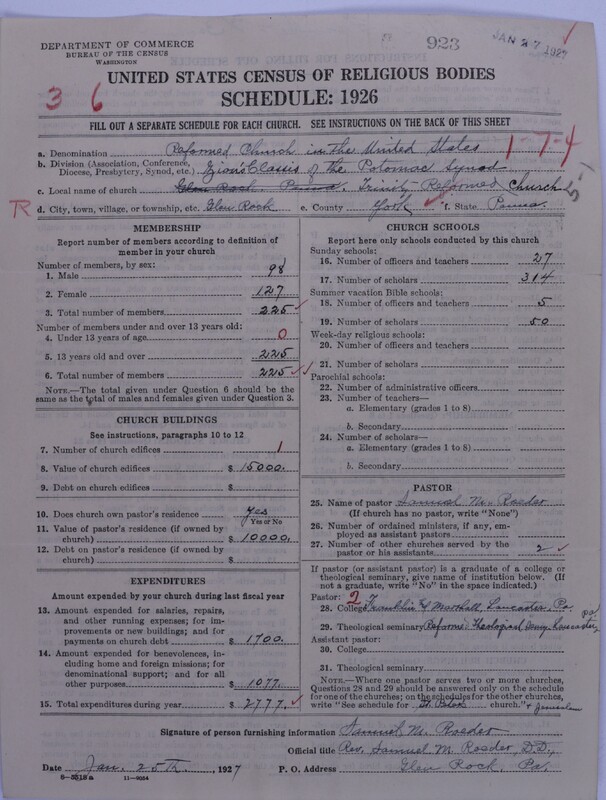 DEPARTMENT OF COMMERCE
BUREAU OF THE CENSUS
WASHINGTON
923
JAN 27 1927
UNITED STATES CENSUS OF RELIGIOUS BODIES
SCHEDULE: 1926
3 6
FILL OUT A SEPARATE SCHEDULE FOR EACH CHURCH. SEE INSTRUCTIONS ON THE BACK OF THIS SHEET
a. Denomination Reformed Church in the United States 1-7-4
b. Division (Association, Conference, Diocese, Presbytery, Synod, etc.) Zion's Classis of the Potomac Synod
c. Local name of church Glen Rock Penna. Trinity Reformed Church
TR d. City, town, village, or township, etc. Glen Rock e. County York f. State Penna.
MEMBERSHIP
Report number of members according to definition of
member in your church
Number of members, by sex:
1. Male 98
2. Female 127
3. Total number of members 225
Number of members under and over 13 years old:
4. Under 13 years of age 0
5. 13 years old and over 225
6. Total number of members 225
NOTE.—The total given under Question 6 should be
the same as the total of males and females given under Question 3.
CHURCH BUILDINGS
See instructions, paragraphs 10 to 12
7. Number of church edifices 1
8. Value of church edifices $ 15000.
9. Debt on church edifices $
10. Does church own pastor's residence yes
Yes or No
11. Value of pastor's residence (if owned by
church) $ 10000.
12. Debt on pastor's residence (if owned by
church) $
EXPENDITURES
Amount expended by your church during last fiscal year
13. Amount expended for salaries, repairs,
and other running expenses; for im-
provements or new buildings; and for
payments on church debt $ 1700.
14. Amount expended for benevolences,
including home and foreign missions; for
denominational support; and for all
other purposes $ 1077.
15. Total expenditures during year $ 2777.
CHURCH SCHOOLS
Report here only schools conducted by this church
Sunday schools:
16. Number of officers and teachers 27
17. Number of scholars 314
Summer vacation Bible schools:
18. Number of officers and teachers 5
19. Number of scholars 50
Week-day religious schools:
20. Number of officers and teachers
21. Number of scholars
Parochial schools:
22. Number of administrative officers
23. Number of teachers—
a. Elementary (grades 1 to 8)
b. Secondary
24. Number of scholars—
a. Elementary (grades 1 to 8)
b. Secondary
PASTOR
25. Name of pastor Samuel M. Roeder
(If church has no pastor, write "None")
26. Number of ordained ministers, if any, em-
ployed as assistant pastors
27. Number of other churches served by the
pastor or his assistants 2
If pastor (or assistant pastor) is a graduate of a college or
theological seminary, give name of institution below. (If
not a graduate, write "No" in the space indicated.)
Pastor: 2
28. College Franklin & Marshall, Lancaster, Pa.
29. Theological seminary Reformed Theological Semy, Lancaster, Pa
Assistant pastor:
30. College
31. Theological seminary
NOTE.—Where one pastor serves two or more churches,
Questions 28 and 29 should be answered only on the schedule
for one of the churches; on the schedules for the other churches,
write "See schedule for St. Peters church." & Jerusalem
Signature of person furnishing information Samuel M. Roeder
Official title Rev. Samuel M. Roeder, D.D.,
Date Jan. 25th, 1927 P. O. Address Glen Rock, Pa.
8-5518a 11-9054